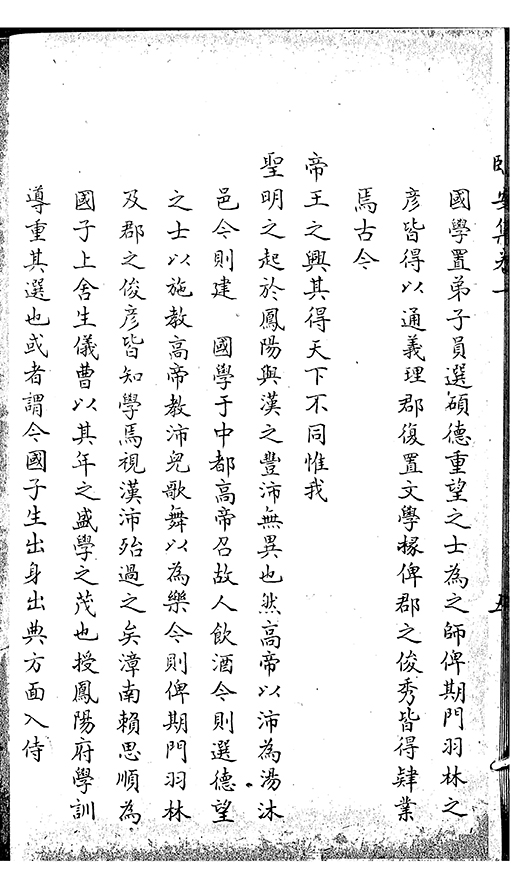 臥安集卷一
國學置弟子員選碩德重望之士為之師俾期門羽林之
彦皆得以通義理郡復置文學掾俾郡之俊秀皆得肄業
焉古今
帝王之興其得天下不同惟我
聖明之起於鳳陽與漢之豐沛無異也然高帝以沛為湯沐
邑今則建 國學于中都高帝召故人飲酒今則選德望
之士以施教高帝教沛兒歌舞以為樂今則俾期門羽林
及郡之俊彦皆知學焉視漢沛殆過之矣漳南賴思順為
國子上舍生儀曹以其年之盛學之茂也授鳳陽府學訓
導重其選也或者謂今國子生出身出典方面入侍